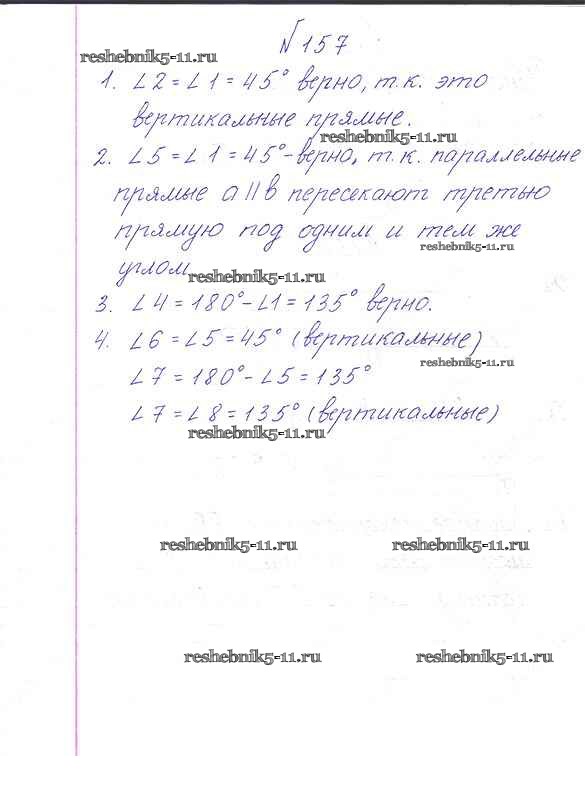 №157
reshebnik5-11.ru
1. ∠2 = ∠1 = 45° верно, т.к. это
вертикальные прямые.
reshebnik5-11.ru
2. ∠5 = ∠1 = 45° - верно, т.к. параллельные
прямые a || в пересекают третью
прямую под одним и тем же
reshebnik5-11.ru
углом
reshebnik5-11.ru
3. ∠4 = 180° - ∠1 = 135° верно.
4. ∠6 = ∠5 = 45° (вертикальные)
reshebnik5-11.ru
∠7 = 180° - ∠5 = 135°
∠7 = ∠8 = 135° (вертикальные)
reshebnik5-11.ru
reshebnik5-11.ru reshebnik5-11.ru
reshebnik5-11.ru reshebnik5-11.ru